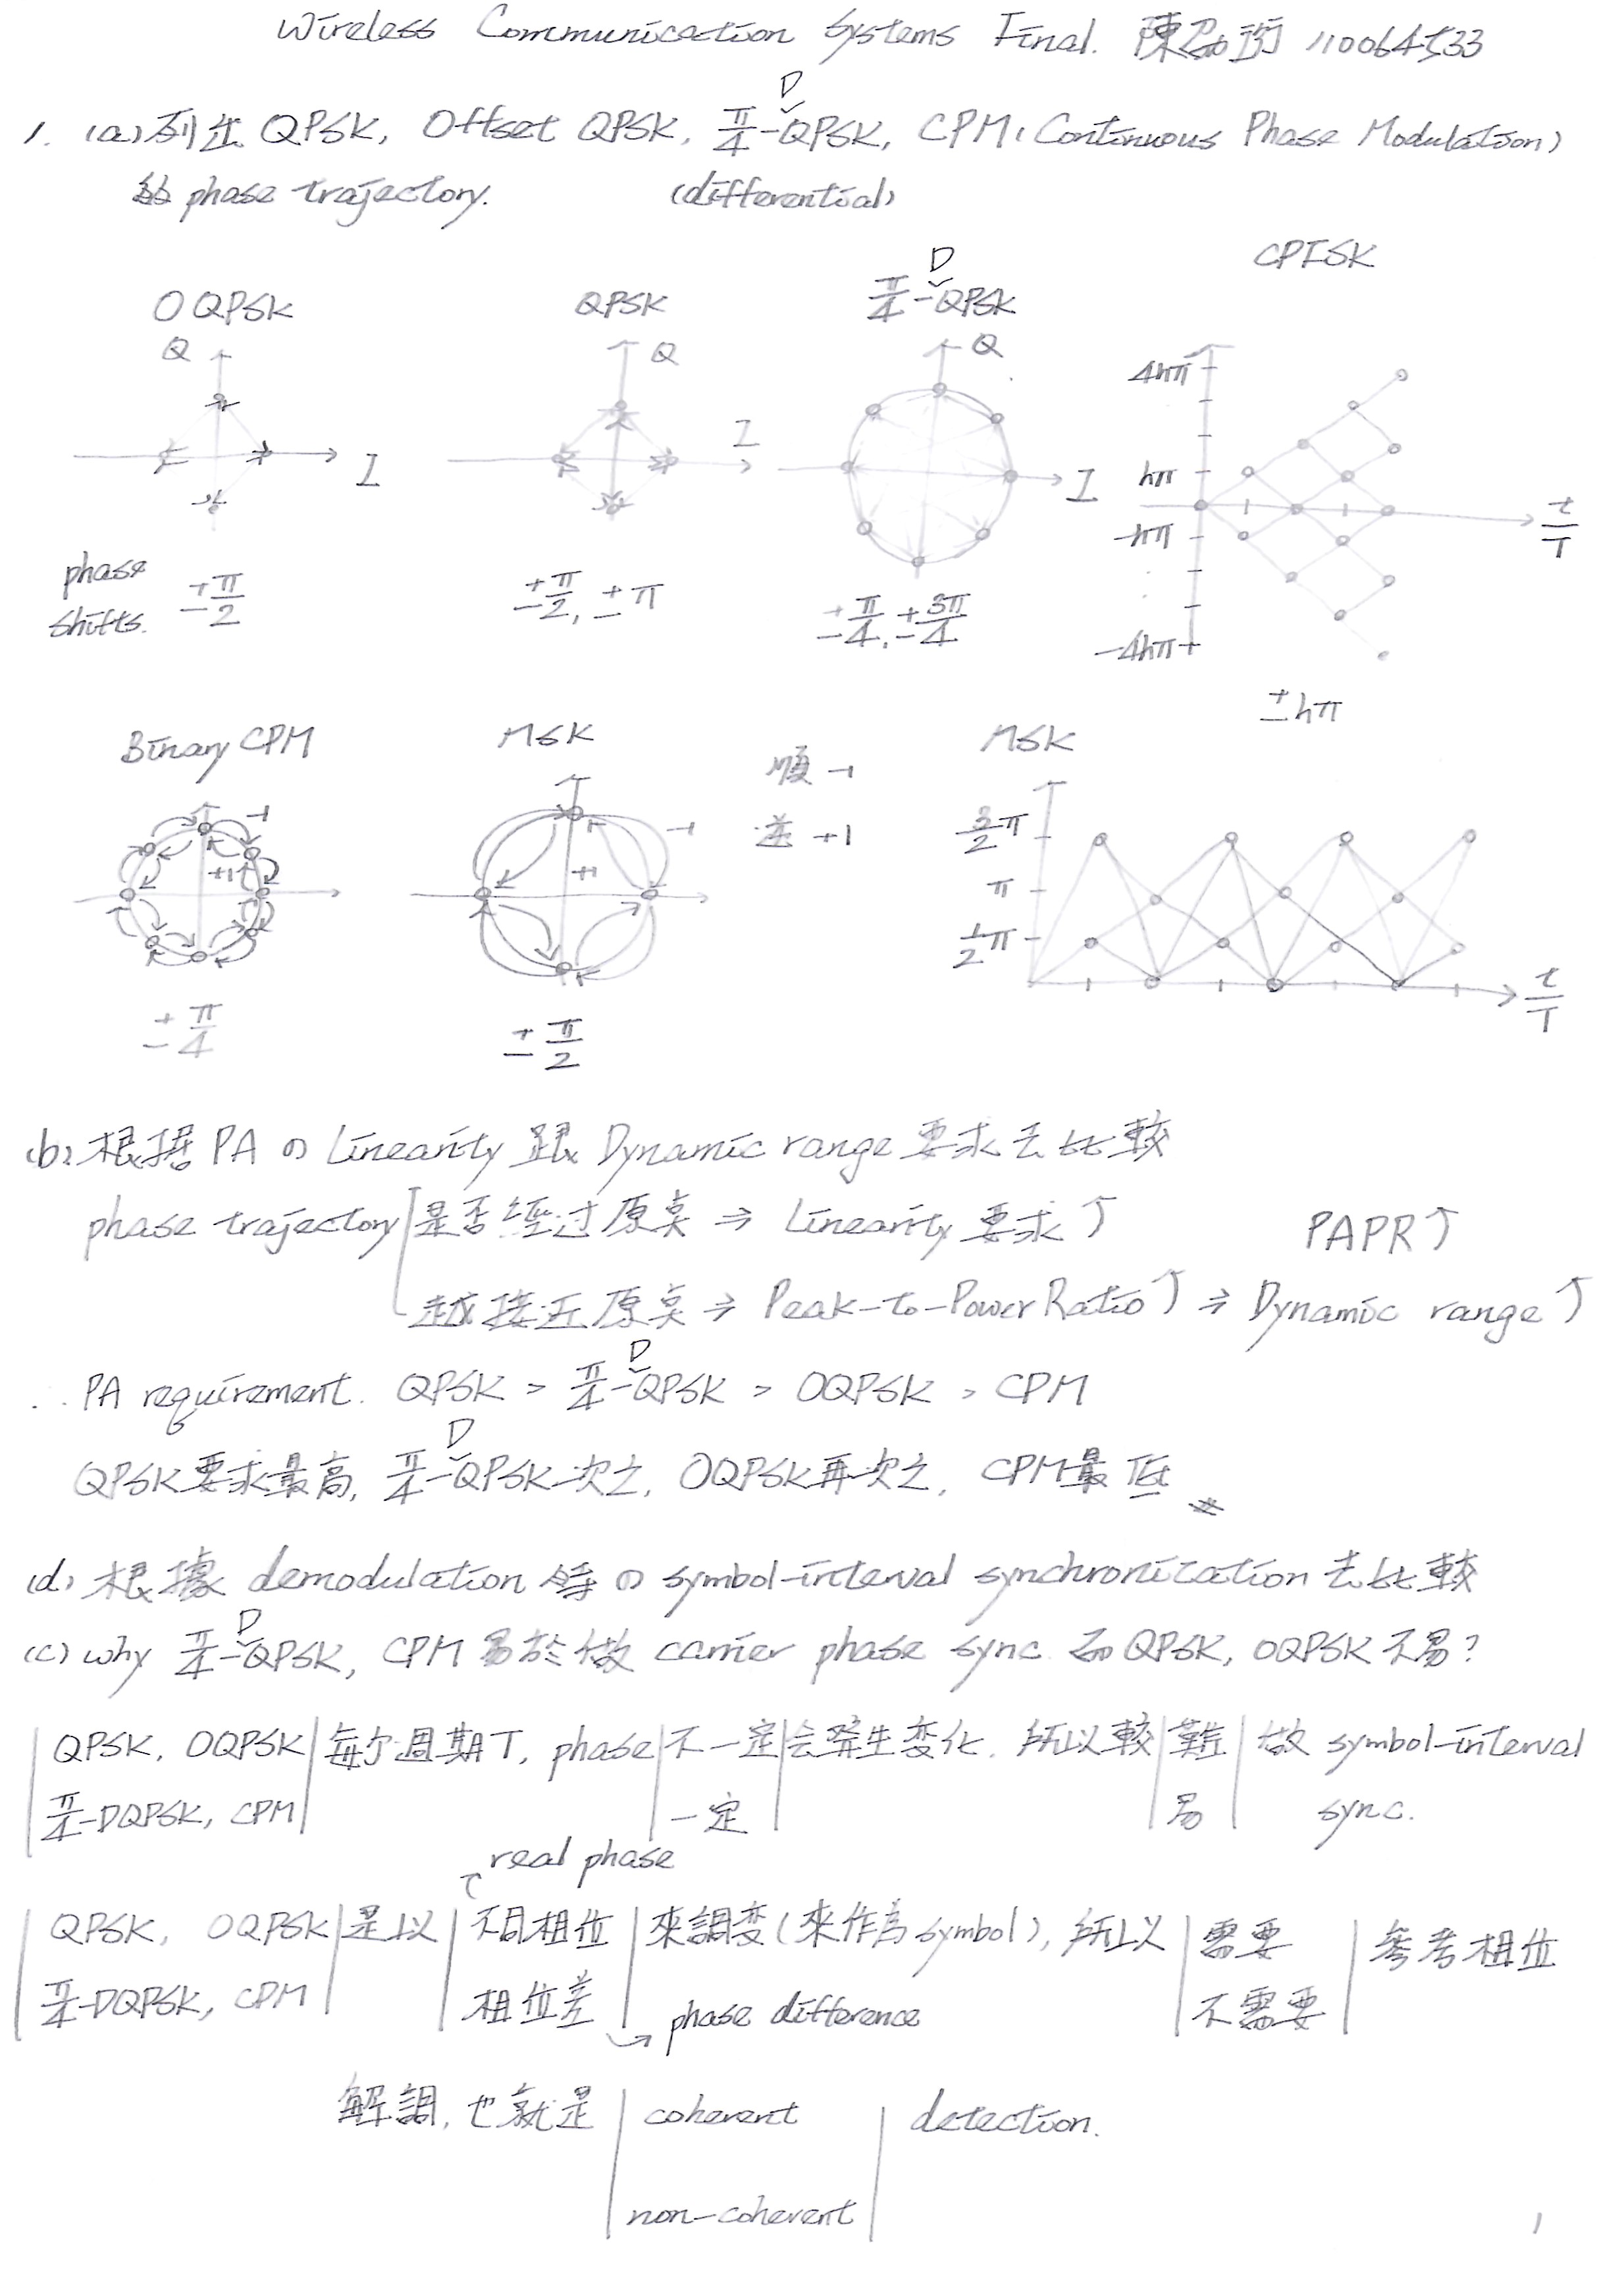 Wireless Communication Systems Final. 陳 110064533
1. (a) 列出 QPSK, Offset QPSK, π/4-DQPSK, CPM (Continuous Phase Modulation)
的 phase trajectory. (differential)
OQPSK QPSK π/4-DQPSK CPFSK
Q Q Q 4hπ
I I I hπ
-hπ t/T
-4hπ
phase shifts. ±π/2 ±π/2, ±π ±π/4, ±3π/4 ±hπ
Binary CPM MSK 順 -1 MSK
-1 -1 逆 +1 3/2π
+1 +1 π
1/2π t/T
±π/4 ±π/2
(b) 根据 PA の Linearity 跟 Dynamic range 要求去比較
phase trajectory 是否経过原点 ⇒ Linearity 要求↑ PAPR↑
越接近原点 ⇒ Peak-to-Power Ratio↑ ⇒ Dynamic range↑
∴ PA requirement. QPSK > π/4-DQPSK > OQPSK > CPM
QPSK要求最高, π/4-DQPSK次之, OQPSK再次之, CPM最低 #
(d) 根據 demodulation 時の symbol-interval synchronization 去比較
(c) why π/4-DQPSK, CPM 易於做 carrier phase sync. 而 QPSK, OQPSK 不易?
QPSK, OQPSK 每个週期T, phase 不一定 会発生変化. 所以較 難 做 symbol-interval
π/4-DQPSK, CPM 一定 易 sync.
real phase
QPSK, OQPSK 是以 不同相位 來調変 (來作為 symbol), 所以 需要 參考相位
π/4-DQPSK, CPM 相位差 phase difference 不需要
解調, 也就是 coherent detection.
non-coherent
1